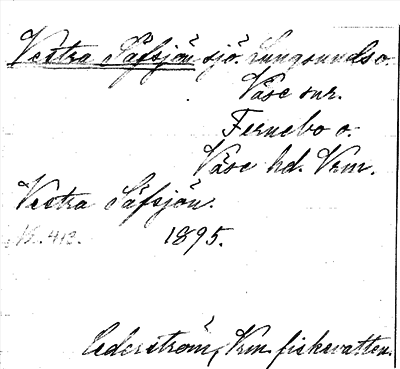 Vestra Säfsjön sjö. Lungsunds o.
Väse snr.
Fernebo o.
Väse hd. Vrm.
Vestra Säfsjön.
1895.
Cederström, Vrm. fiskevatten.